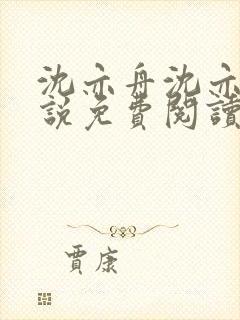 沈亦舟沈亦
說免費閱讀
賈康